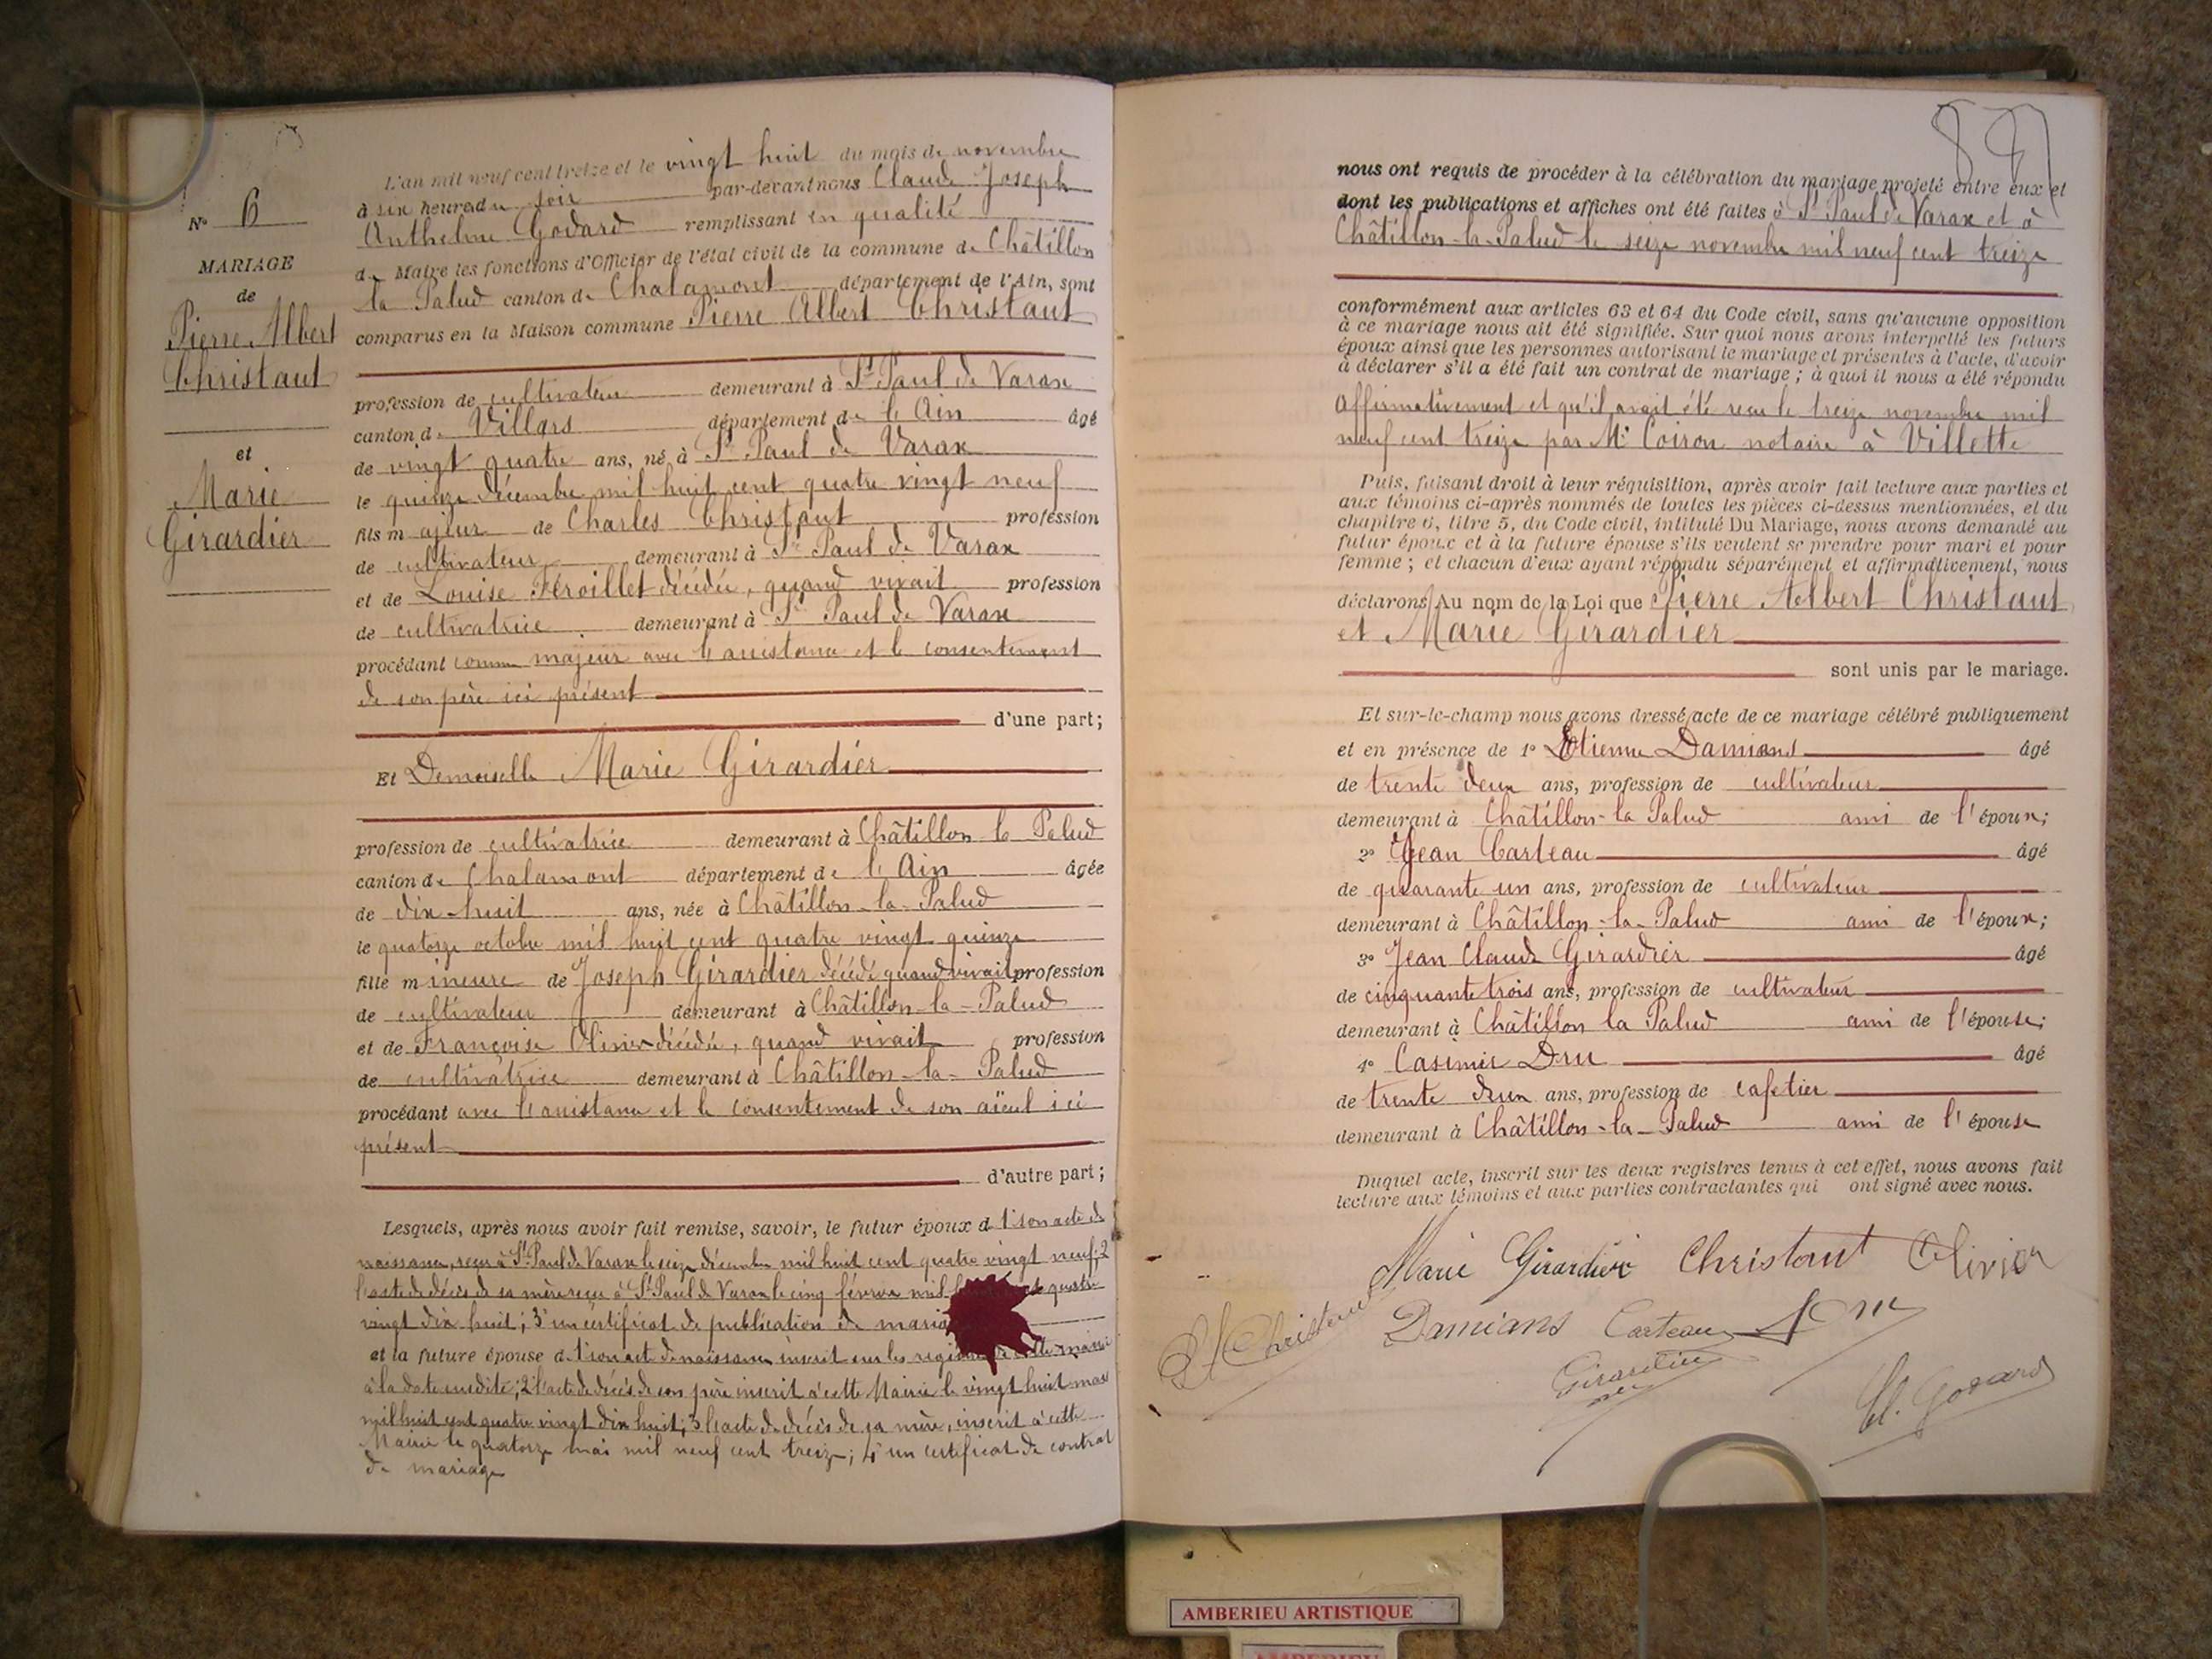 N° 6
MARIAGE
de
Pierre Albert
Christaut
et
Marie
Girardier
L'an mil neuf cent treize et le vingt huit du mois de novembre
à six heures du soir par-devant nous Claude Joseph
Anthelme Godard remplissant en qualité
de Maire les fonctions d'Officier de l'état civil de la commune de Châtillon
la Palud canton de Chalamont département de l'Ain, sont
comparus en la Maison commune Pierre Albert Christaut
profession de cultivateur demeurant à St Paul de Varax
canton de Villars département de l'Ain âgé
de vingt quatre ans, né à St Paul de Varax
le quinze décembre mil huit cent quatre vingt neuf
fils majeur de Charles Christaut profession
de cultivateur demeurant à St Paul de Varax
et de Louise Féroillet décédée, quand vivait profession
de cultivatrice demeurant à St Paul de Varax
procédant comme majeur avec l'assistance et le consentement
de son père ici présent
d'une part;
Et Demoiselle Marie Girardier
profession de cultivatrice demeurant à Châtillon la Palud
canton de Chalamont département de l'Ain âgée
de dix-huit ans, née à Châtillon-la-Palud
le quatorze octobre mil huit cent quatre vingt quinze
fille mineure de Joseph Girardier décédé quand vivait profession
de cultivateur demeurant à Châtillon-la-Palud
et de Françoise Olivier décédée, quand vivait profession
de cultivatrice demeurant à Châtillon-la-Palud
procédant avec l'assistance et le consentement de son aïeul ici
présent
d'autre part;
Lesquels, après nous avoir fait remise, savoir, le futur époux d 1° son acte de
naissance, reçu à St Paul de Varax le seize décembre mil huit cent quatre vingt neuf; 2°
l'acte de décès de sa mère reçu à St Paul de Varax le cinq février mil quatre
vingt dix huit; 3° un certificat de publication de
et la future épouse d 1° son acte de naissance inscrit sur les mairie
à la date susdite; 2° l'acte de décès de son père inscrit à cette Mairie le vingt huit mars
mil huit cent quatre vingt dix huit; 3° l'acte de décès de sa mère, inscrit à cette
Mairie le quatorze mai mil neuf cent treize; 4° un certificat de contrat
de mariage
nous ont requis de procéder à la célébration du mariage projeté entre eux et
dont les publications et affiches ont été faites à St Paul de Varax et à
Châtillon-la-Palud le seize novembre mil neuf cent treize
conformément aux articles 63 et 64 du Code civil, sans qu'aucune opposition
à ce mariage nous ait été signifiée. Sur quoi nous avons interpellé les futurs
époux ainsi que les personnes autorisant le mariage et présentes à l'acte, d'avoir
à déclarer s'il a été fait un contrat de mariage; à quoi il nous a été répondu
Affirmativement et qu'il avait été reçu le treize novembre mil
neuf cent treize par Me Coiron notaire à Villette
Puis, faisant droit à leur réquisition, après avoir fait lecture aux parties et
aux témoins ci-après nommés de toutes les pièces ci-dessus mentionnées, et du
chapitre 6, titre 5, du Code civil, intitulé Du Mariage, nous avons demandé au
futur époux et à la future épouse s'ils veulent se prendre pour mari et pour
femme; et chacun d'eux ayant répondu séparément et affirmativement, nous
déclarons Au nom de la Loi que Pierre Albert Christaut
et Marie Girardier
sont unis par le mariage.
Et sur-le-champ nous avons dressé acte de ce mariage célébré publiquement
et en présence de 1° Etienne Damians âgé
de trente deux ans, profession de cultivateur
demeurant à Châtillon-la Palud ami de l'époux;
2° Jean Carteau âgé
de quarante un ans, profession de cultivateur
demeurant à Châtillon-la-Palud ami de l'époux;
3° Jean Claude Girardier âgé
de cinquante trois ans, profession de cultivateur
demeurant à Châtillon la Palud ami de l'épouse;
4° Casimir Dru âgé
de trente deux ans, profession de cafetier
demeurant à Châtillon-la-Palud ami de l'épouse
Duquel acte, inscrit sur les deux registres tenus à cet effet, nous avons fait
lecture aux témoins et aux parties contractantes qui ont signé avec nous.
Marie Girardier Christaut Olivier
Christaut Damians Carteau Dru
Girardier
Cl. Godard
AMBERIEU ARTISTIQUE
AMBERIEU